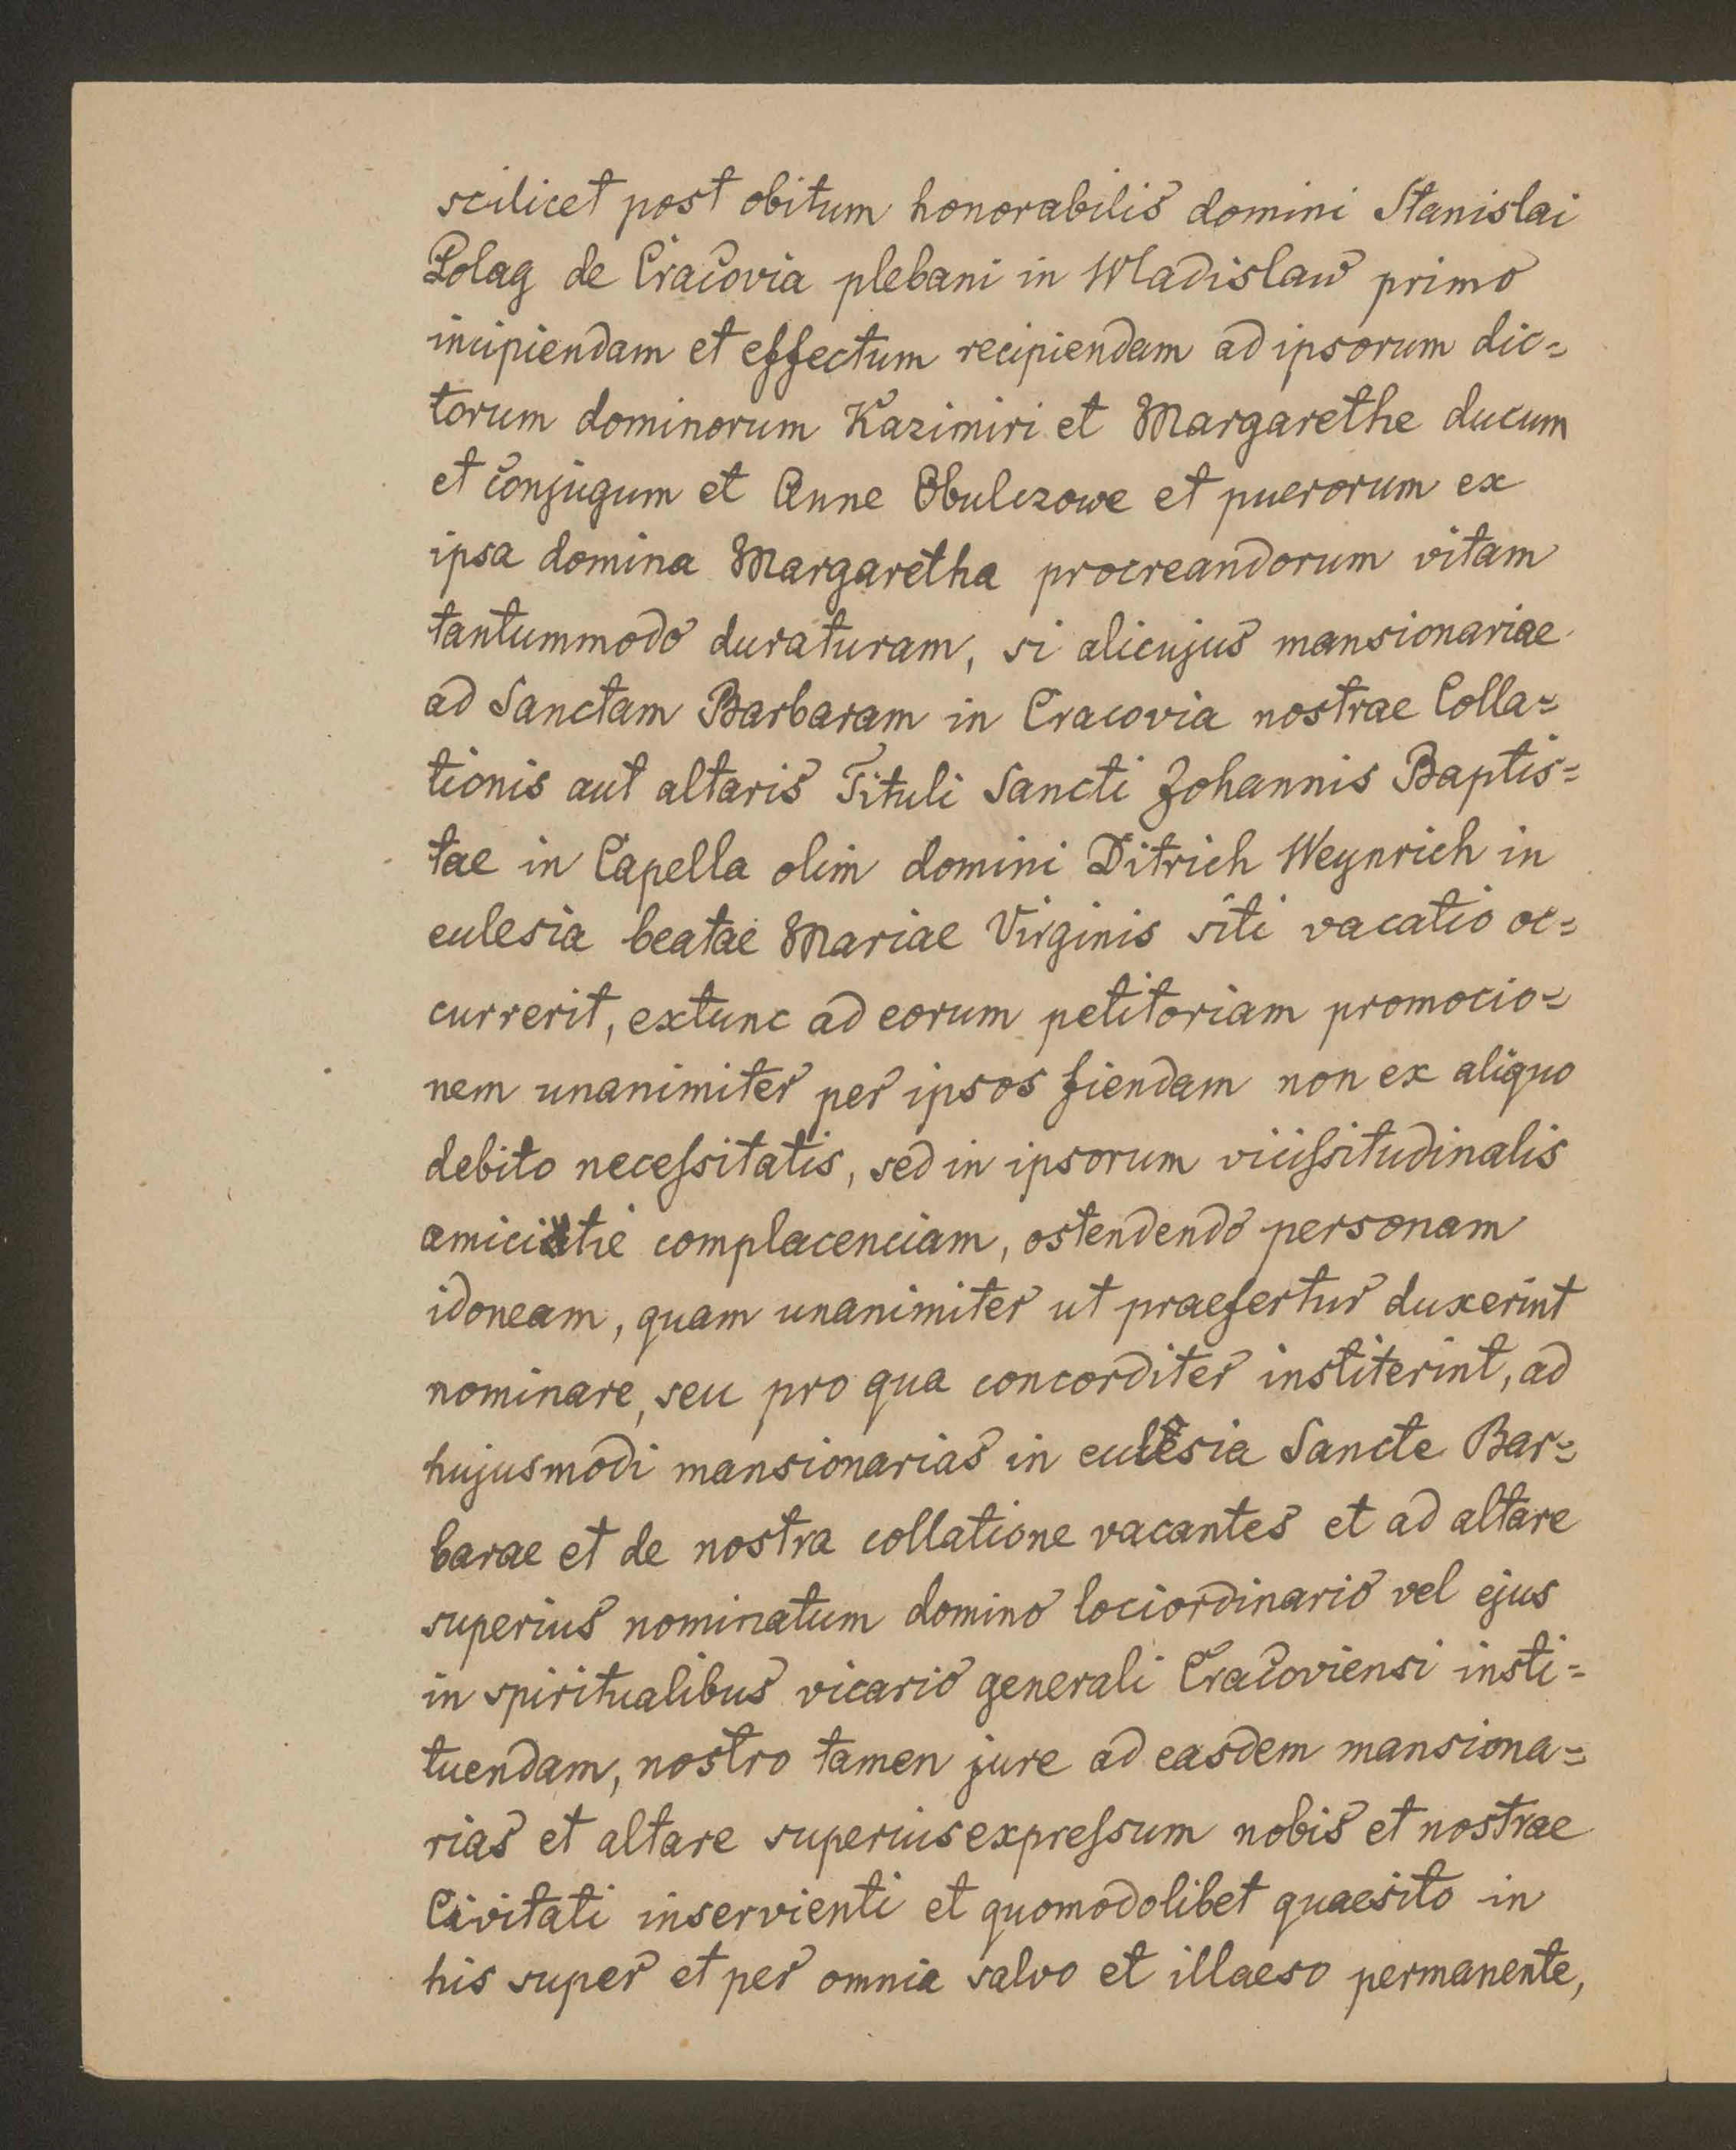 scilicet post obitum honorabilis domini Stanislai
Polag de Cracovia plebani in Wladislaw primo
incipiendam et effectum recipiendam ad ipsorum dic=
torum dominorum Kazimiri et Margarethe ducum
et conjugum et Anne Obulczowe et puerorum ex
ipsa domina Margaretha procreandorum vitam
tantummodo duraturam, si alicujus mansionariae
ad Sanctam Barbaram in Cracovia nostrae Colla=
tionis aut altaris Tituli Sancti Johannis Baptis=
tae in Capella olim domini Ditrich Weynrich in
ecclesia beatae Mariae Virginis siti vacatio oc=
currerit, extunc ad eorum petitoriam promocio=
nem unanimiter per ipsos fiendam non ex aliquo
debito necesſsitatis, sed in ipsorum viciſsitudinalis
amicitie complacenciam, ostendendo personam
idoneam, quam unanimiter ut praefertur duxerint
nominare, seu pro qua concorditer institerint, ad
hujusmodi mansionarias in ecclesia Sancte Bar=
barae et de nostra collatione vacantes et ad altare
superius nominatum domino lociordinario vel ejus
in spiritualibus vicario generali Cracoviensi insti=
tuendam, nostro tamen jure ad easdem mansiona=
rias et altare superius expreſsum nobis et nostrae
Civitati inservienti et quomodolibet quaesito in
his super et per omnia salvo et illaeso permanente,